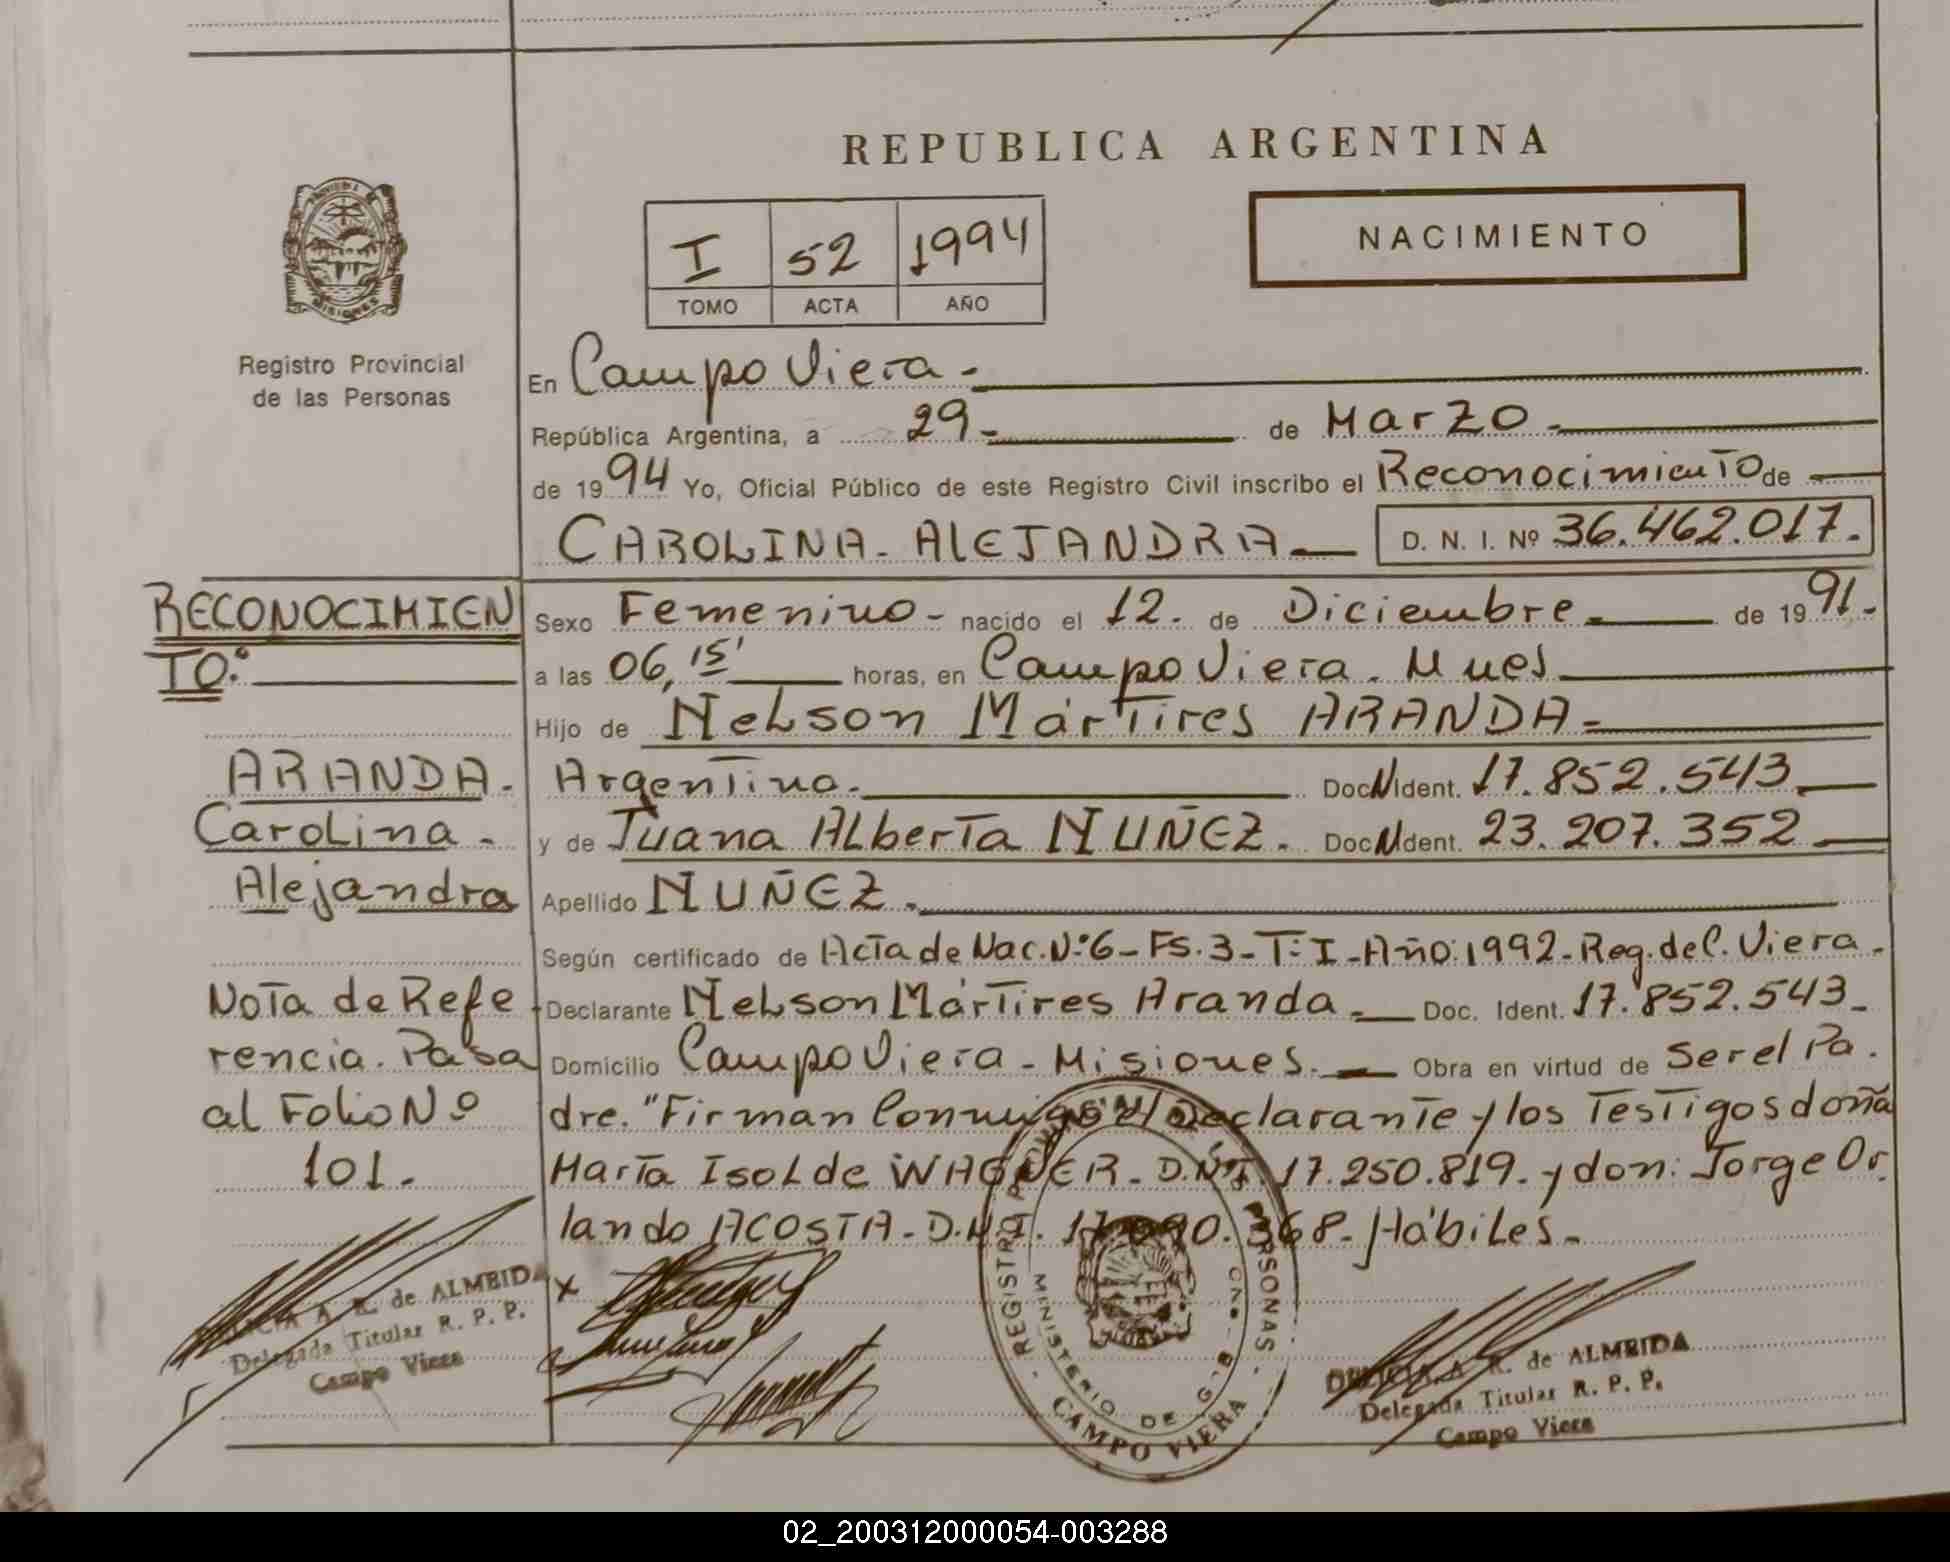 REPUBLICA ARGENTINA
I 52 1994
TOMO ACTA AÑO
NACIMIENTO
MISIONES
Registro Provincial
de las Personas
En Campo Viera.
República Argentina, a 29 de Marzo
de 1994 Yo, Oficial Público de este Registro Civil inscribo el Reconocimiento de
CAROLINA ALEJANDRA D. N. I. Nº 36.462.017.
RECONOCIMIEN
TO:
ARANDA.
Carolina
Alejandra
Nota de Refe
rencia. Pasa
al Folio Nº
101.
Sexo Femenino nacido el 12 de Diciembre de 1991.
a las 06,15' horas, en Campo Viera. Mnes
Hijo de Nelson Mártires ARANDA
Argentino. Doc N Ident. 17.852.543
y de Juana Alberta NUÑEZ. Doc N Ident. 23.207.352
Apellido NUÑEZ.
Según certificado de Acta de Nac. Nº 6 - Fs. 3 - T: I - Año: 1992 - Reg. de C. Viera.
Declarante Nelson Mártires Aranda. Doc. Ident. 17.852.543
Domicilio Campo Viera - Misiones. Obra en virtud de Ser el Pa
dre. "Firman Conmigo el Declarante y los Testigos doña
María Isolde WAGNER - D.N.I. 17.250.819. y don: Jorge Or
lando ACOSTA - D.N.I. 368 - Hábiles.
DELICIA A. R. de ALMEIDA
Delegada Titular R. P. P.
Campo Viera
REGISTRO PERSONAS
MINISTERIO DE G.
CAMPO VIERA
DELICIA A. R. de ALMEIDA
Delegada Titular R. P. P.
Campo Viera
02_200312000054-003288